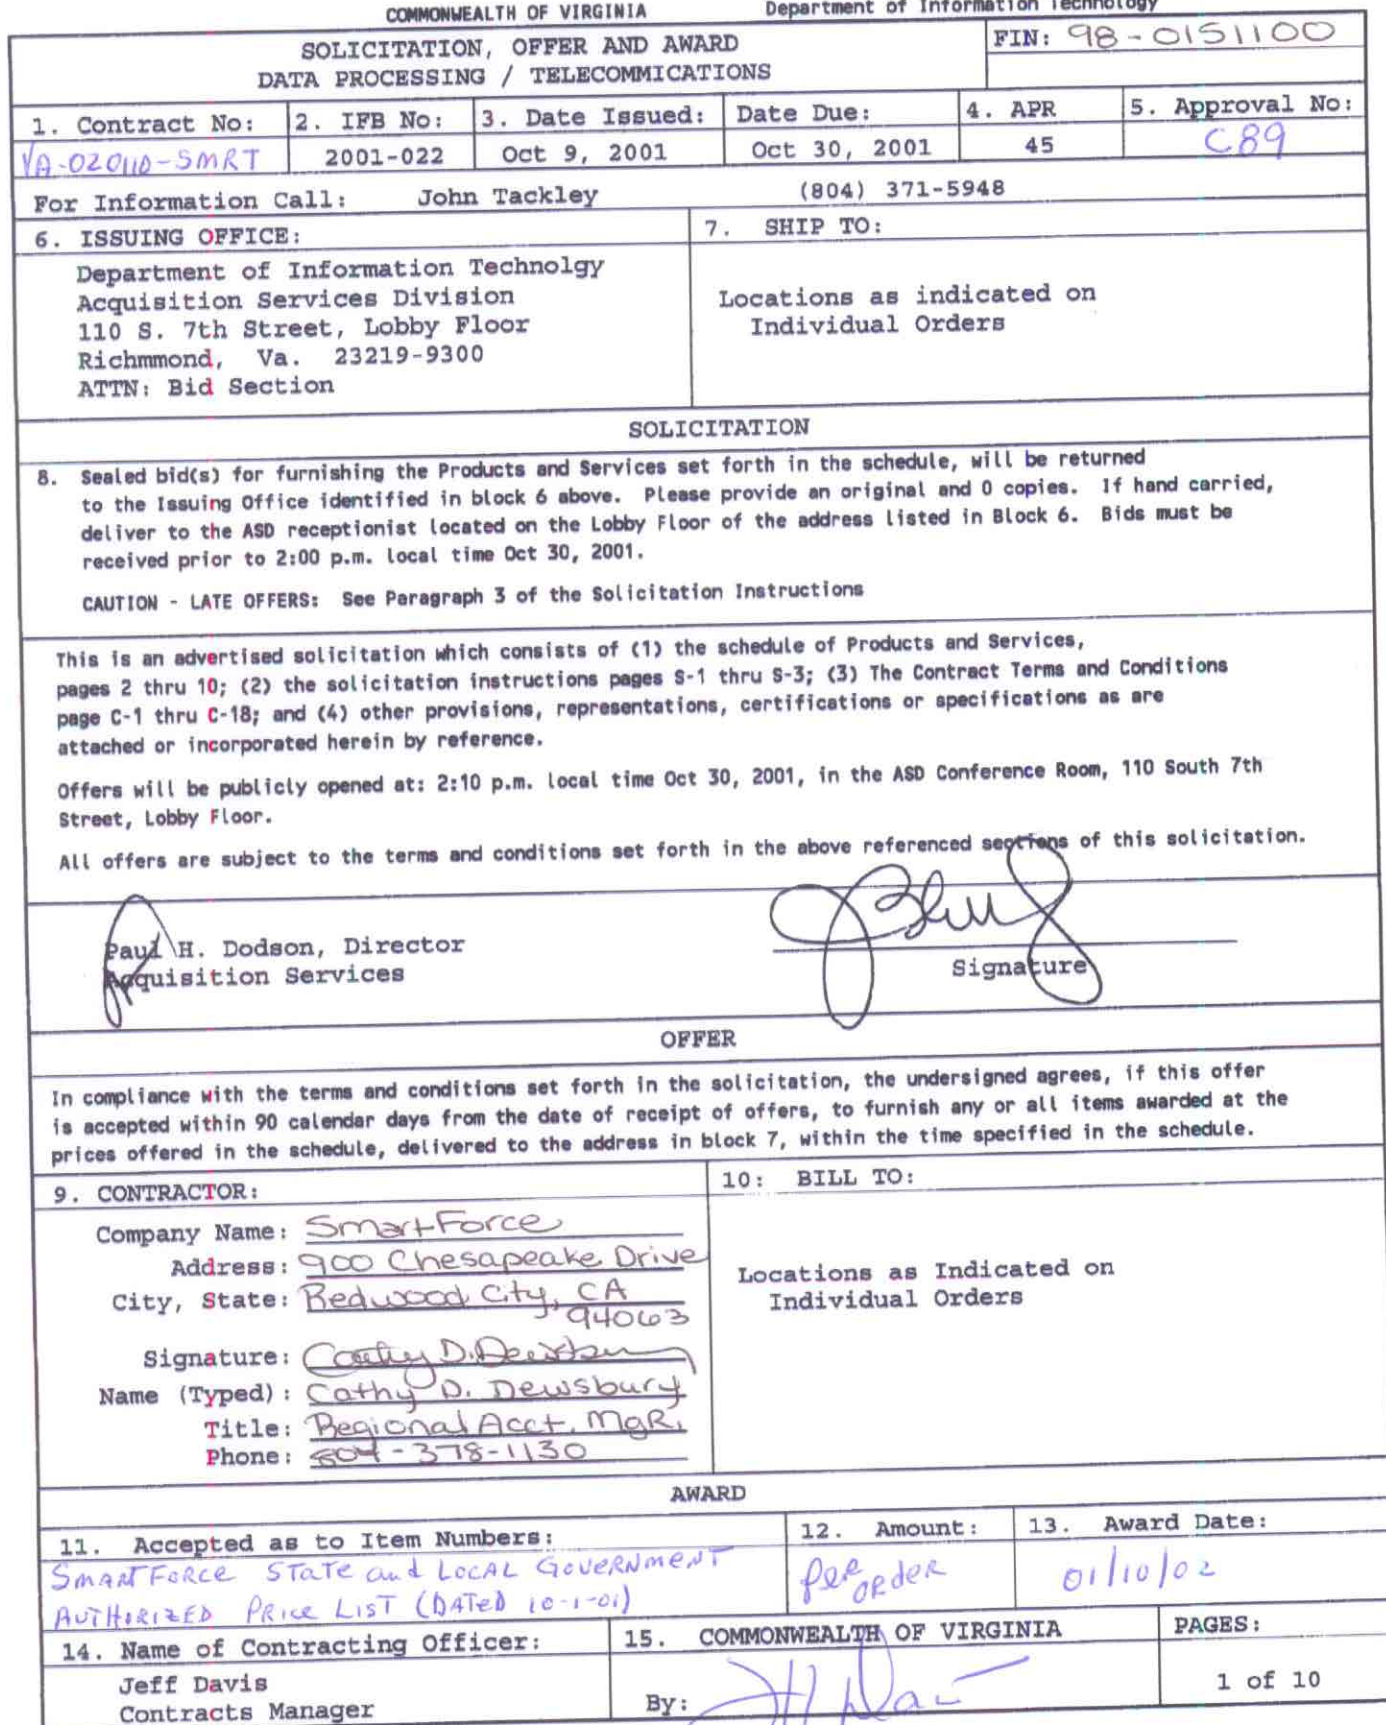 COMMONWEALTH OF VIRGINIA Department of Information Technology
SOLICITATION, OFFER AND AWARD
DATA PROCESSING / TELECOMMICATIONS
FIN: 98-0151100
1. Contract No: 2. IFB No: 3. Date Issued: Date Due: 4. APR 5. Approval No:
VA-020110-SMRT 2001-022 Oct 9, 2001 Oct 30, 2001 45 C89
For Information Call: John Tackley (804) 371-5948
6. ISSUING OFFICE: 7. SHIP TO:
Department of Information Technolgy
Acquisition Services Division
110 S. 7th Street, Lobby Floor
Richmmond, Va. 23219-9300
ATTN: Bid Section
Locations as indicated on
Individual Orders
SOLICITATION
8. Sealed bid(s) for furnishing the Products and Services set forth in the schedule, will be returned
to the Issuing Office identified in block 6 above. Please provide an original and 0 copies. If hand carried,
deliver to the ASD receptionist located on the Lobby Floor of the address listed in Block 6. Bids must be
received prior to 2:00 p.m. local time Oct 30, 2001.
CAUTION - LATE OFFERS: See Paragraph 3 of the Solicitation Instructions
This is an advertised solicitation which consists of (1) the schedule of Products and Services,
pages 2 thru 10; (2) the solicitation instructions pages S-1 thru S-3; (3) The Contract Terms and Conditions
page C-1 thru C-18; and (4) other provisions, representations, certifications or specifications as are
attached or incorporated herein by reference.
Offers will be publicly opened at: 2:10 p.m. local time Oct 30, 2001, in the ASD Conference Room, 110 South 7th
Street, Lobby Floor.
All offers are subject to the terms and conditions set forth in the above referenced sections of this solicitation.
Paul H. Dodson, Director
Acquisition Services
Signature
OFFER
In compliance with the terms and conditions set forth in the solicitation, the undersigned agrees, if this offer
is accepted within 90 calendar days from the date of receipt of offers, to furnish any or all items awarded at the
prices offered in the schedule, delivered to the address in block 7, within the time specified in the schedule.
9. CONTRACTOR: 10: BILL TO:
Company Name: SmartForce
Address: 900 Chesapeake Drive
City, State: Redwood City, CA
94063
Signature: Cathy D. Dewsbury
Name (Typed): Cathy D. Dewsbury
Title: Regional Acct. MgR.
Phone: 804-378-1130
Locations as Indicated on
Individual Orders
AWARD
11. Accepted as to Item Numbers: 12. Amount: 13. Award Date:
SMARTFORCE STATE and LOCAL GOVERNMENT
AUTHORIZED PRICE LIST (DATED 10-1-01)
PER ORDER
01/10/02
14. Name of Contracting Officer: 15. COMMONWEALTH OF VIRGINIA PAGES:
Jeff Davis
Contracts Manager
By:
1 of 10